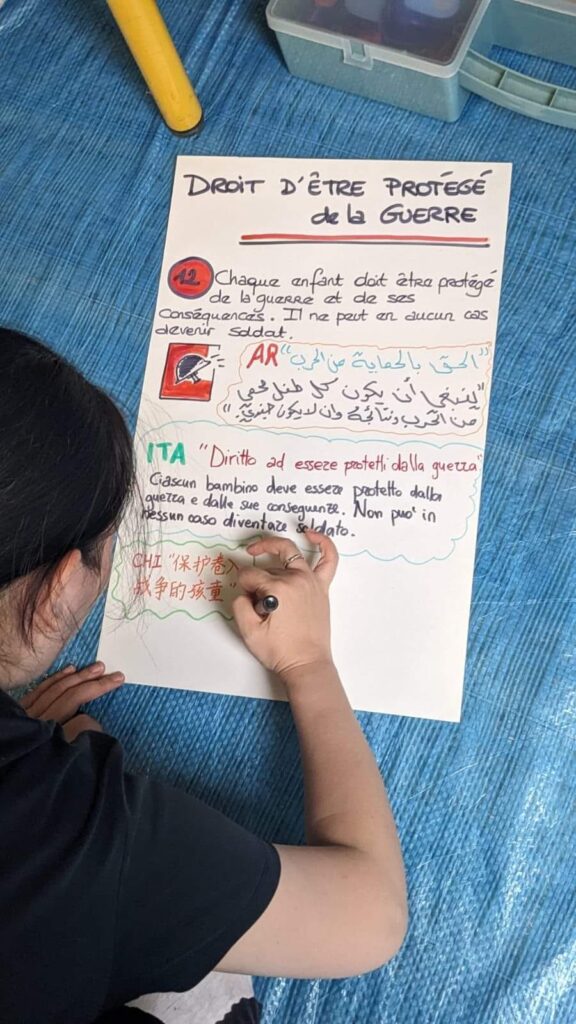 DROIT D'ÊTRE PROTÉGÉ
de la GUERRE
12 Chaque enfant doit être protégé
de la guerre et de ses
conséquences. Il ne peut en aucun cas
devenir soldat.
AR "الحق بالحماية من الحرب"
"ينبغي أن يكون كل طفل محمي
من الحرب ونتائجه وان لا يكون جندي."
ITA "Diritto ad essere protetti dalla guerra"
Ciascun bambino deve essere protetto dalla
guerra e dalle sue conseguenze. Non puo' in
nessun caso diventare soldato.
CHI "保护卷入
战争的孩童"